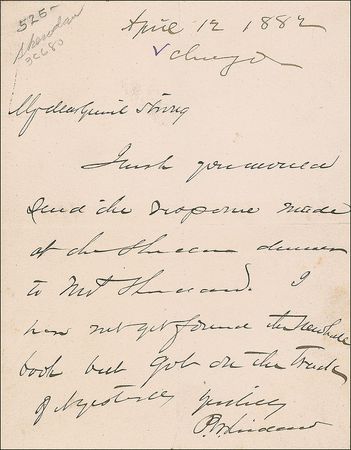 525-
Sheridan
36680
April 12 1882
Chicago
My dear General Strong
I wish you would
send the response made
at the dinner
to Mrs I
have not yet found the
book but got on the track
of yesterday
Yours truly
P. H. Sheridan